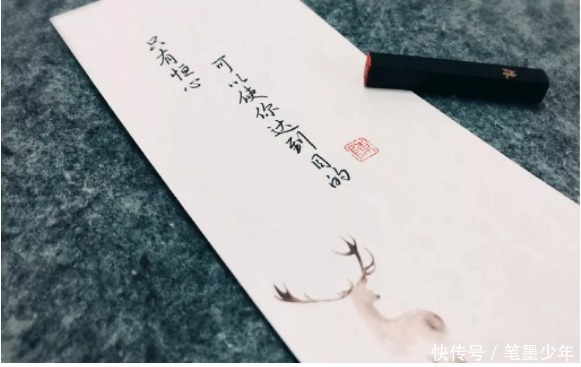 只有恒心
可以使你达到目的
快传号 / 笔墨少年